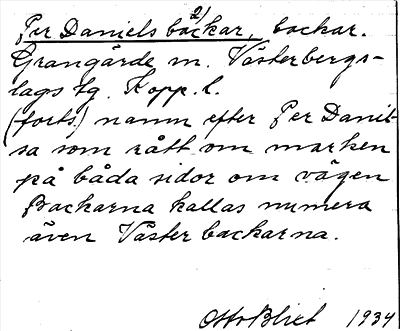 2/
Per Daniels backar, backar.
Grangärde m. Västerbergs-
lags tg. Kopp. l.
(forts.) namn efter Per Daniel-
sa som rått om marken
på båda sidor om vägen
Backarna kallas numera
även Väster backarna.
Otto Blixt 1934